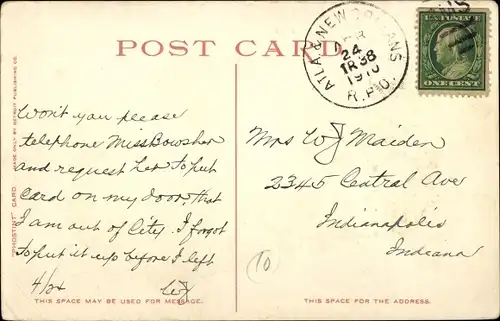 POST CARD
ATLA. & NEW ORLEANS
APR
24
TR 38
1910
R.P.O.
U.S. POSTAGE
ONE CENT
"PHOSTINT" CARD
MADE ONLY BY DETROIT PUBLISHING CO.
Won't you please
telephone Miss Bowsher
and request her to put
card on my door, that
I am out of City. I forgot
to put it up before I left
4/24 WJ
Mrs WJ Maiden
2345 Central Ave
Indianapolis
Indiana
10
THIS SPACE MAY BE USED FOR MESSAGE.
THIS SPACE FOR THE ADDRESS.